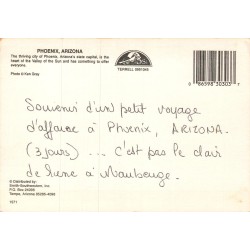 PHOENIX, ARIZONA
The thriving city of Phoenix, Arizona's state capital, is the
heart of the Valley of the Sun and has something to offer
everyone.
Photo © Ken Gray
PETLEY
Souvenir d'un petit voyage
d'affaire à Phœnix, ARIZONA.
(3 jours) ... c'est pas le clair
de lune à Maubeuge.
Distributed by
Smith-Southwestern, Inc.
P.O. Box
Tempe, Arizona
1571